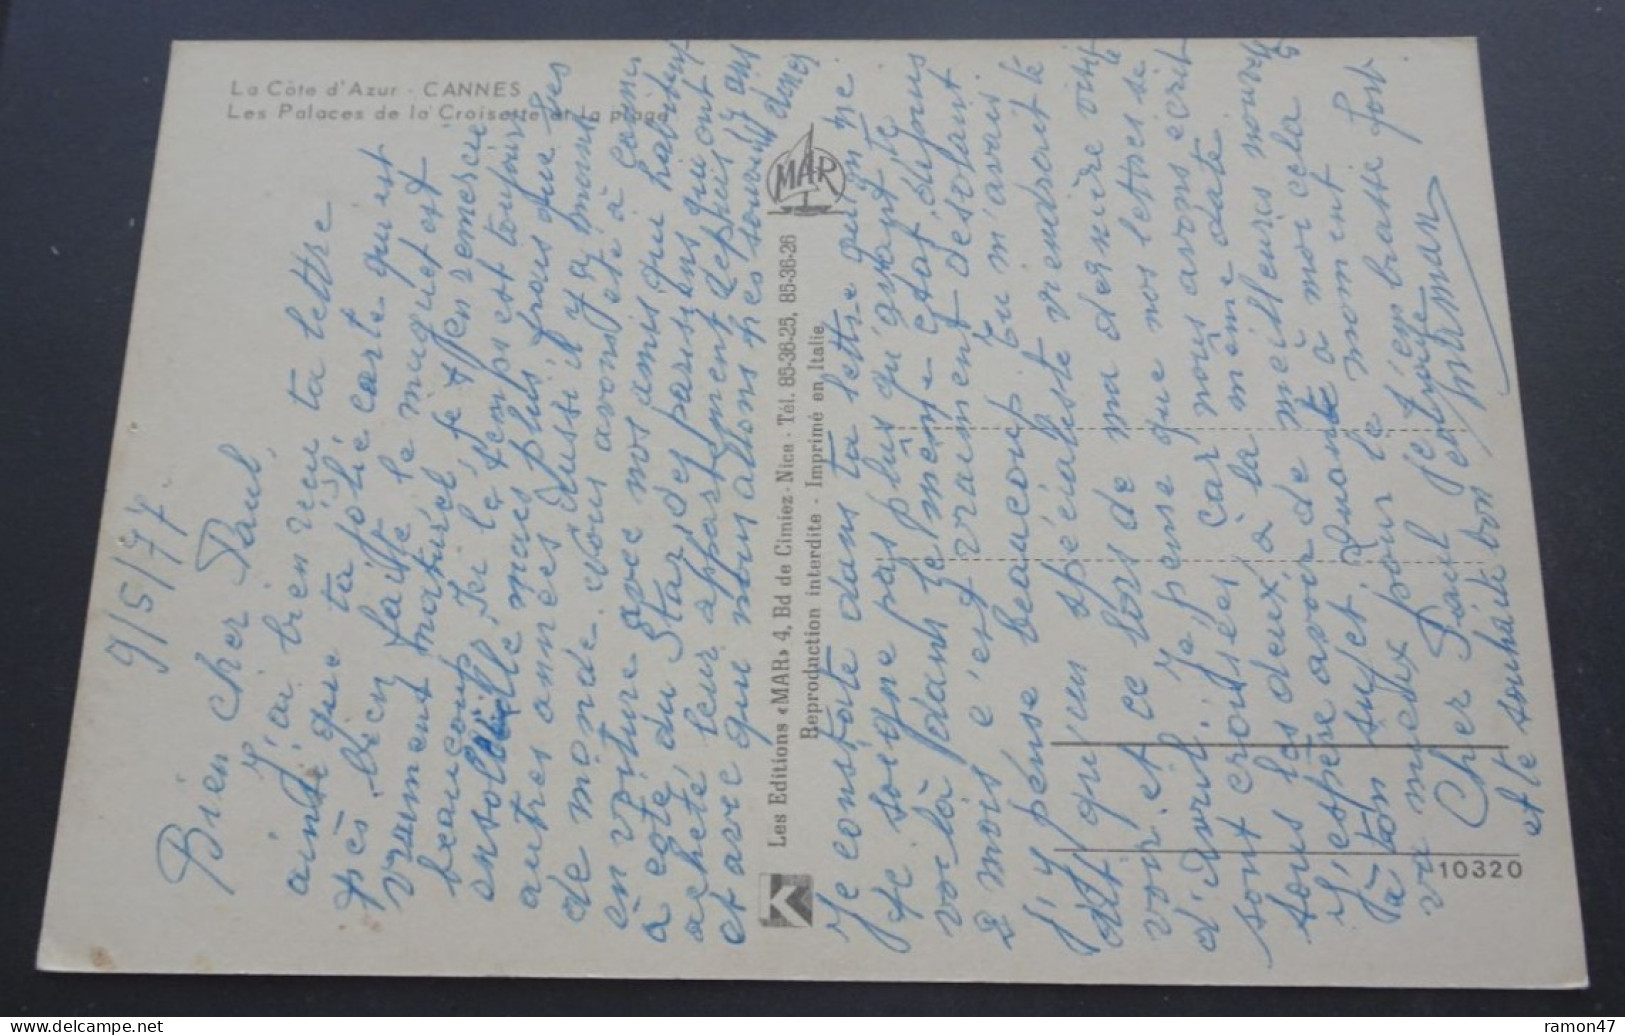 La Côte d'Azur - CANNES
Les Palaces de la Croisette et la plage
9/5/77.
Bien cher Paul,
J'ai bien reçu ta lettre
ainsi que ta jolie carte qui est
très bien faite le muguet est
vraiment naturel, je t'en remercie
beaucoup. Ici le temps est toujours
ensoleillé mais plus frais que les
autres années. Aussi il y a moins
de monde. Nous avons été à
en voiture avec nos amis qui habitent
à côté du Star, des parisiens qui ont
acheté leur appartement depuis ans
et avec qui nous allons très souvent
Les Editions «MAR» 4, Bd de Cimiez - Nice - Tél. 85-36-25, 85-36-26
Reproduction interdite - Imprimé en Italie
MAR
K
Je constate dans ta lettre qu'on ne
te soigne pas plus qu'avant te
voilà dans le même état depuis
2 mois c'est vraiment désolant
j'y pense beaucoup. Tu m'avais
dit qu'un spécialiste viendrait te
voir et ce lors de ma dernière visite
d'Avril. Je pense que nos lettres se
sont croisées car nous avons écrit
tous les deux à la même date.
J'espère avoir de meilleures nouvelles
à ton sujet. Quant à moi cela
va mieux pour le moment
Cher Paul je t'embrasse fort
et te souhaite bon
10320
ramon47